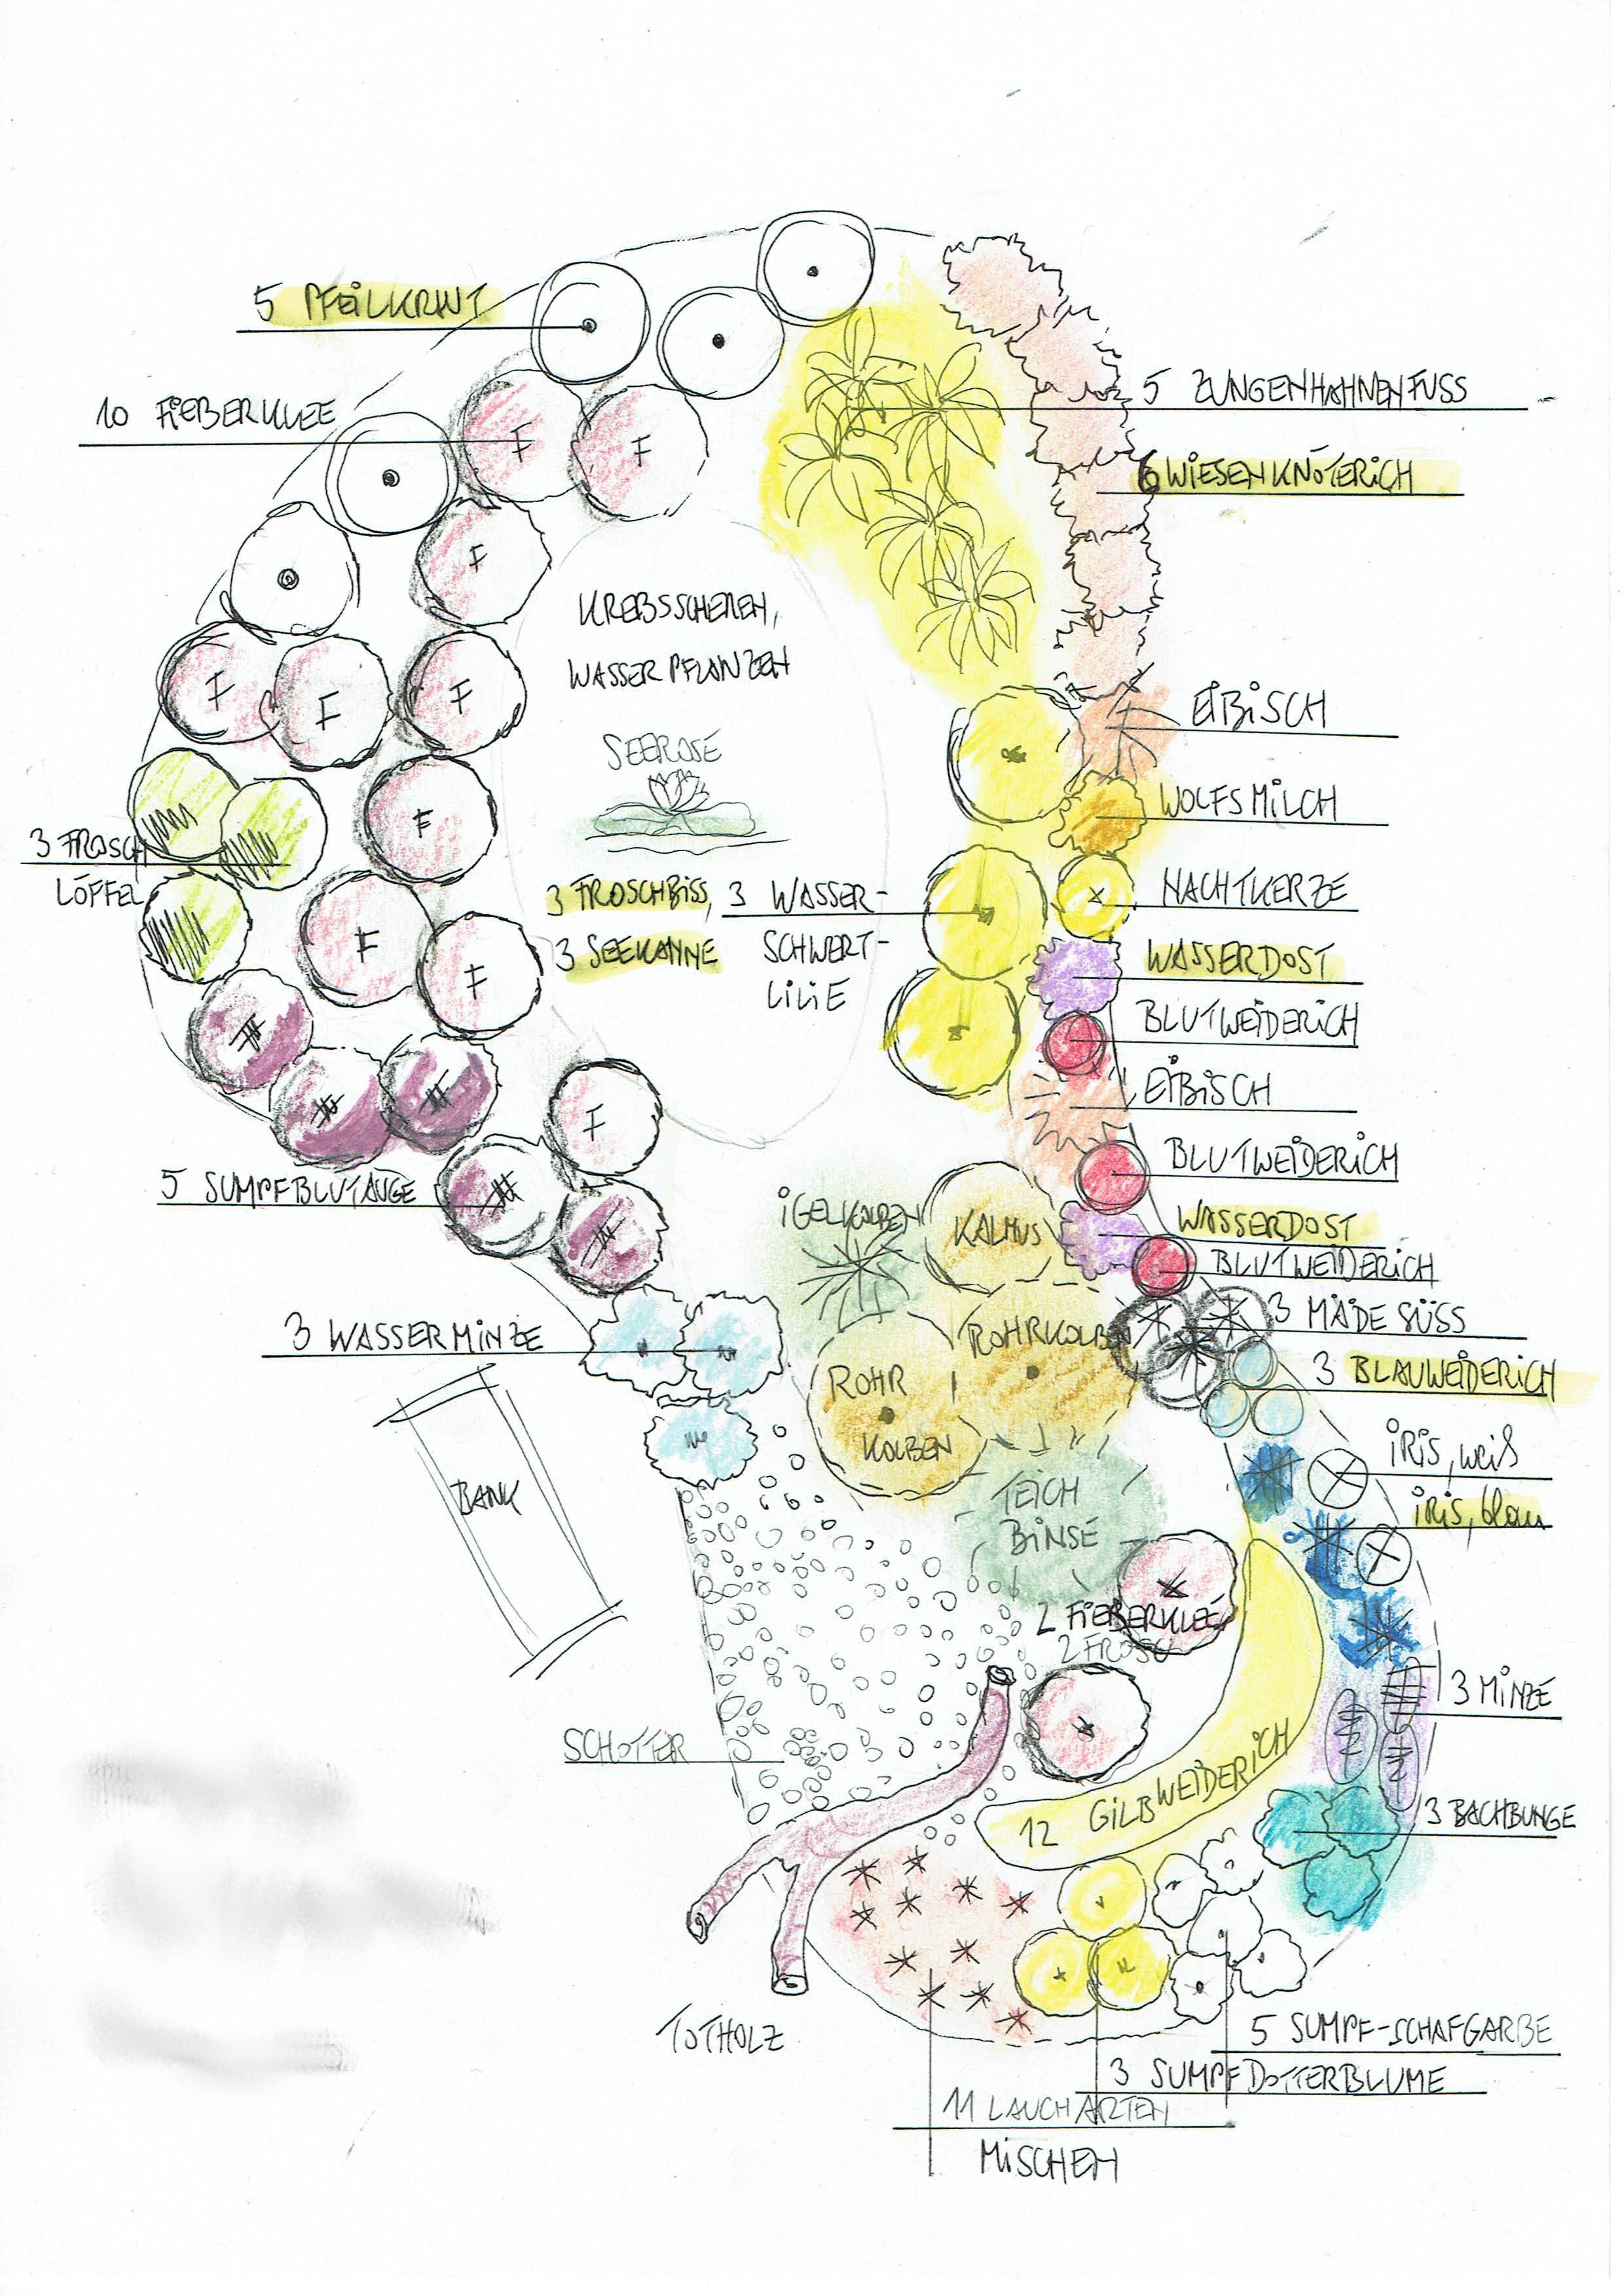 5 PFEILKRAUT
10 FIEBERKLEE
5 ZUNGENHAHNENFUSS
6 WIESENKNÖTERICH
KREBSSCHEREN,
WASSERPFLANZEN
SEEROSE
EIBISCH
WOLFSMILCH
3 FROSCH
LÖFFEL
3 FROSCHBISS, 3 WASSER-
3 SEEKANNE SCHWERT-
LILIE
NACHTKERZE
WASSERDOST
BLUTWEIDERICH
EIBISCH
BLUTWEIDERICH
5 SUMPFBLUTAUGE
IGELKOLBEN
KALMUS
WASSERDOST
BLUTWEIDERICH
3 MÄDESÜSS
3 WASSERMINZE
ROHRKOLBEN
ROHR
KOLBEN
3 BLAUWEIDERICH
BANK
IRIS, weiß
IRIS, blau
TEICH
BINSE
2 FIEBERKLEE
2 FROSCH
3 MINZE
SCHOTTER
12 GILBWEIDERICH
3 BACHBUNGE
TOTHOLZ
5 SUMPF-SCHAFGARBE
3 SUMPFDOTTERBLUME
11 LAUCHARTEN
MISCHEN
F
F
F
F
F
F
F
F
F
F